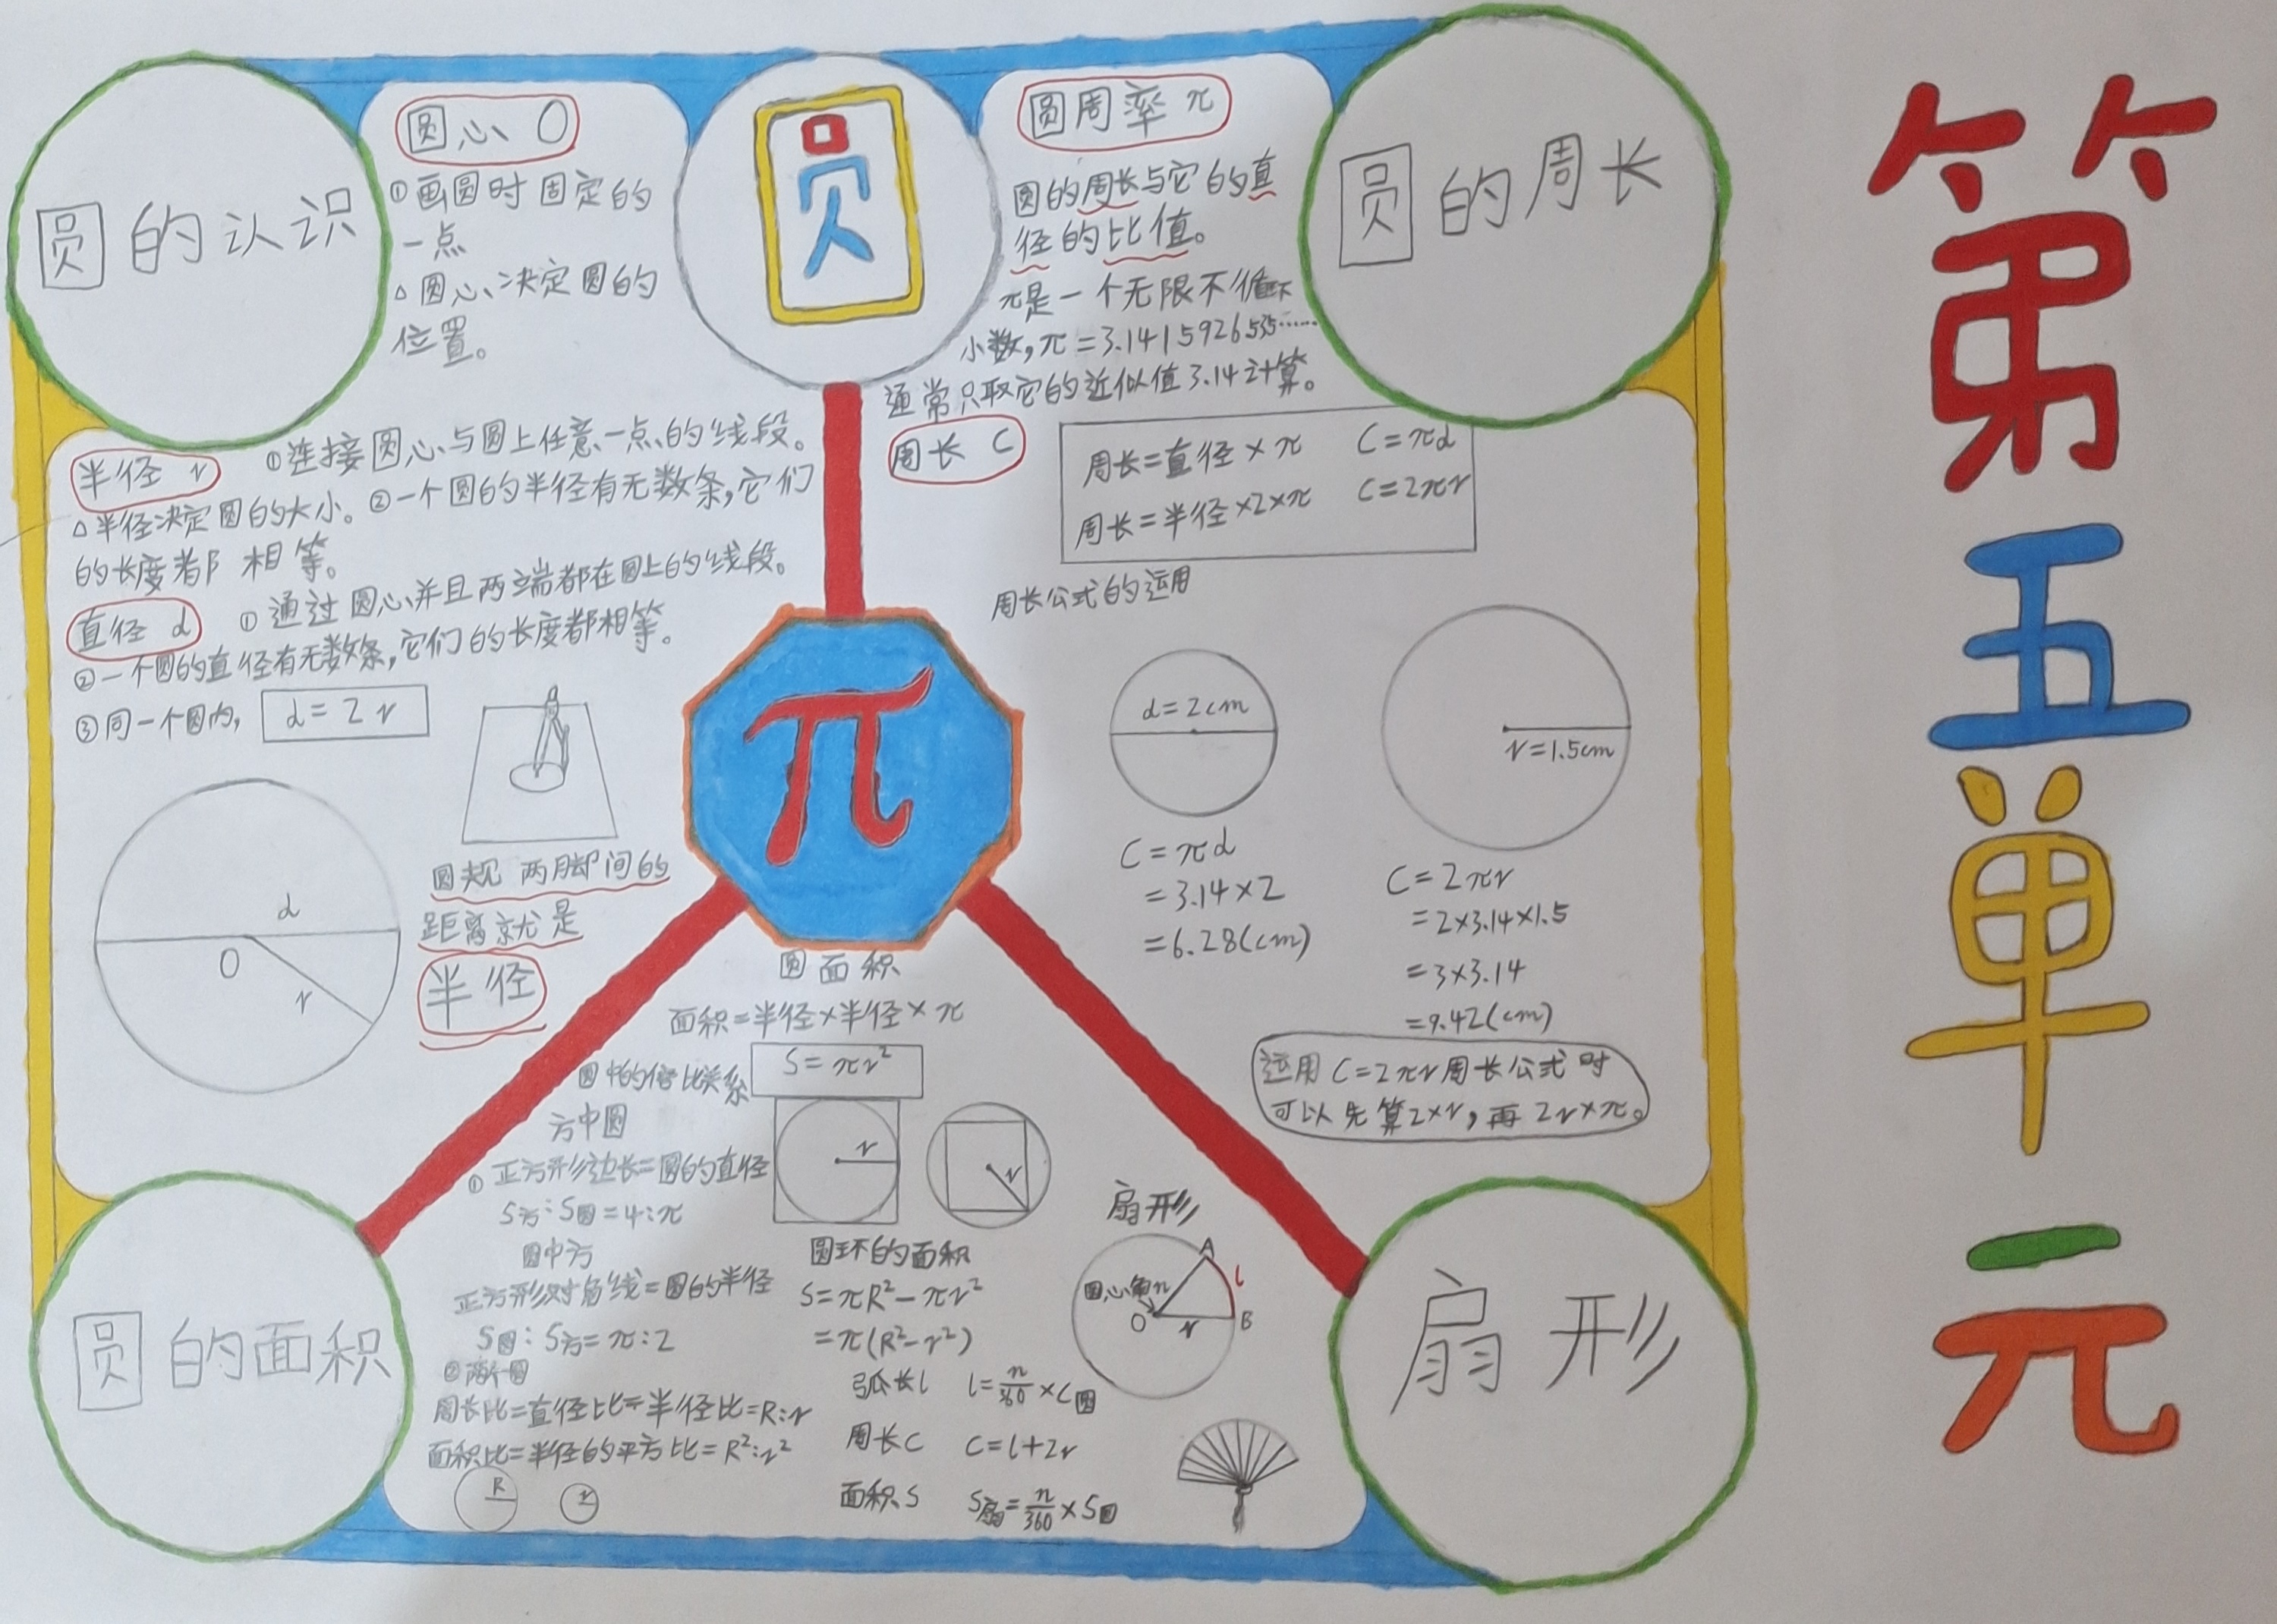 第五单元
圆
圆的认识
圆心 O
①画圆时固定的
一点
△圆心决定圆的
位置。
半径 r ①连接圆心与圆上任意一点的线段。
△半径决定圆的大小。②一个圆的半径有无数条,它们
的长度都相等。
直径 d ①通过圆心并且两端都在圆上的线段。
②一个圆的直径有无数条,它们的长度都相等。
③同一个圆内, d=2r
d
O
r
圆规两脚间的
距离就是
半径
π
圆周率 π
圆的周长与它的直
径的比值。
π是一个无限不循环
小数,π=3.1415926535……
通常只取它的近似值3.14计算。
圆的周长
周长 C
周长=直径×π C=πd
周长=半径×2×π C=2πr
周长公式的运用
d=2cm
C=πd
=3.14×2
=6.28(cm)
r=1.5cm
C=2πr
=2×3.14×1.5
=3×3.14
=9.42(cm)
运用C=2πr周长公式时
可以先算2×r,再2r×π。
圆的面积
圆面积
面积=半径×半径×π
S=πr²
圆中的倍比关系
方中圆
①正方形边长=圆的直径
S方:S圆=4:π
r
r
圆中方
正方形对角线=圆的半径
S圆:S方=π:2
②两个圆
周长比=直径比=半径比=R:r
面积比=半径的平方比=R²:r²
R
r
圆环的面积
S=πR²-πr²
=π(R²-r²)
扇形
扇形
圆心角n
A
l
O
r
B
弧长l l=n/360×C圆
周长C C=l+2r
面积S S扇=n/360×S圆